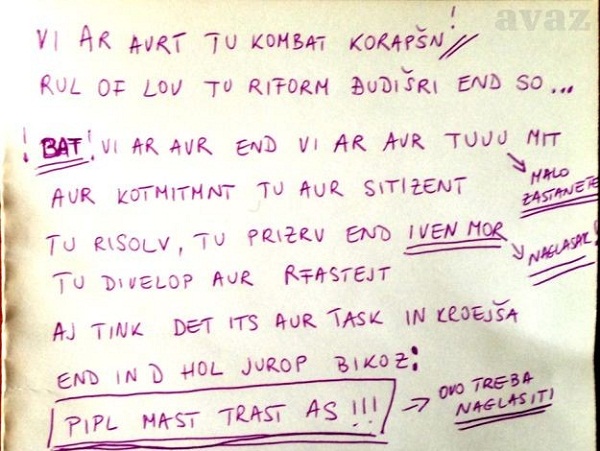 avaz
VI AR AVRT TU KOMBAT KORAPŠN!
RUL OF LOV TU RIFORM ĐUDIŠRI END SO...
! BAT! VI AR AUR END VI AR AUR TUUU MIT
MALO
ZASTANETE
AUR KOTMITMNT TU AUR SITIZENT
TU RISOLV, TU PRIZRV END IVEN MOR
NAGLASAK!
TU DIVELOP AUR RFASTEJT
AJ TINK DET ITS AUR TASK IN KROEJŠA
END IN D HOL JUROP BIKOZ:
PIPL MAST TRAST AS!!! → OVO TREBA
NAGLASITI